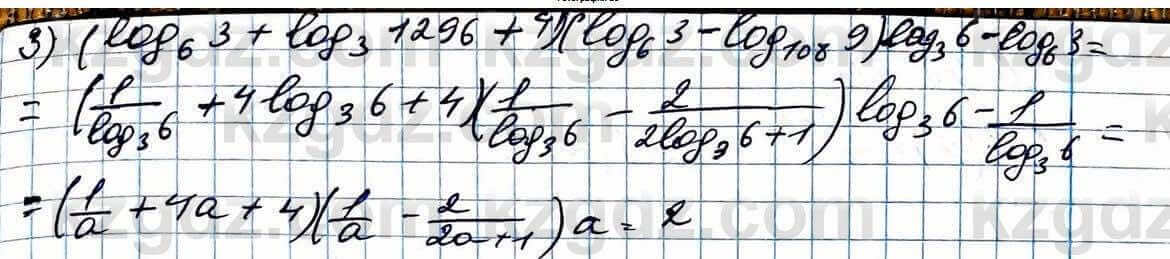 3) (log₆ 3 + log₃ 1296 + 4)(log₆ 3 - log₁₀₈ 9) log₃ 6 - log₆ 3 =
= (1/log₃ 6 + 4 log₃ 6 + 4)(1/log₃ 6 - 2/(2log₃ 6 + 1)) log₃ 6 - 1/log₃ 6 =
= (1/a + 4a + 4)(1/a - 2/(2a + 1)) a = 2